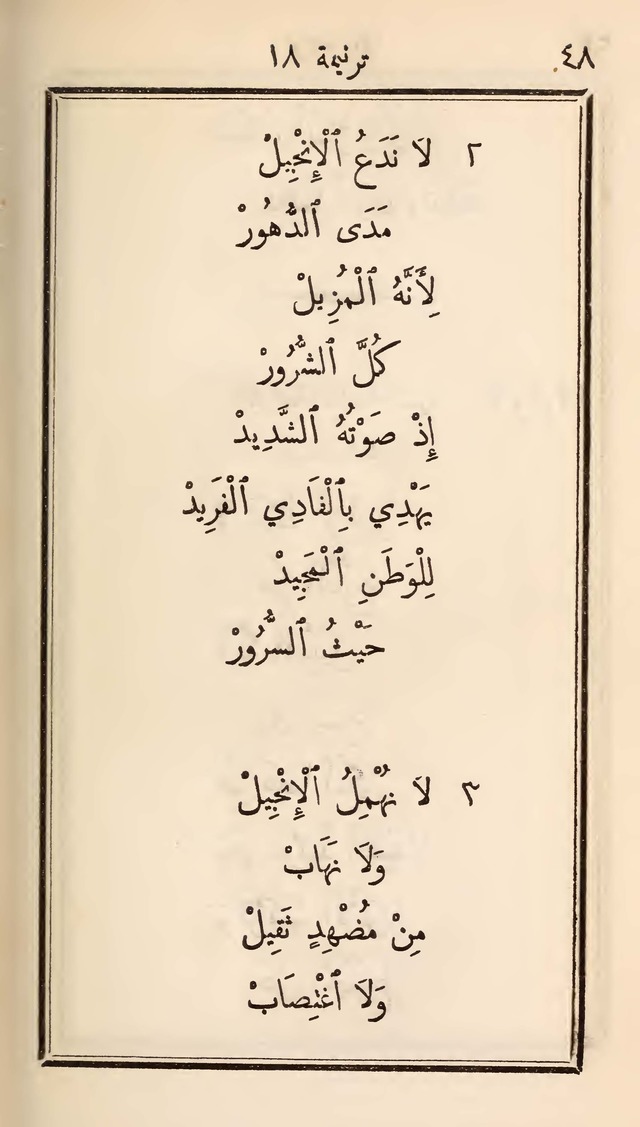 ٤٨ ترنيمة ١٨
٢ لَا نَدَعُ ٱلْإِنْجِيلْ
مَدَى ٱلدُّهُورْ
لِأَنَّهُ ٱلْمُزِيلْ
كُلَّ ٱلشُّرُورْ
إِذْ صَوْتُهُ ٱلشَّدِيدْ
يَهْدِي بِٱلْفَادِي ٱلْفَرِيدْ
لِلْوَطَنِ ٱلْمَجِيدْ
حَيْثُ ٱلسُّرُورْ
٣ لَا نُهْمِلُ ٱلْإِنْجِيلْ
وَلَا نَهَابْ
مِنْ مُضْهِدٍ ثَقِيلْ
وَلَا ٱغْتِصَابْ